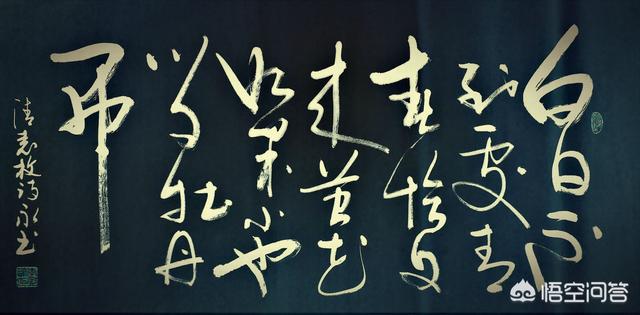 白日不
到处青
春恰自
来苔花
如米小也
学牡丹
开
清袁枚诗永书
悟空问答